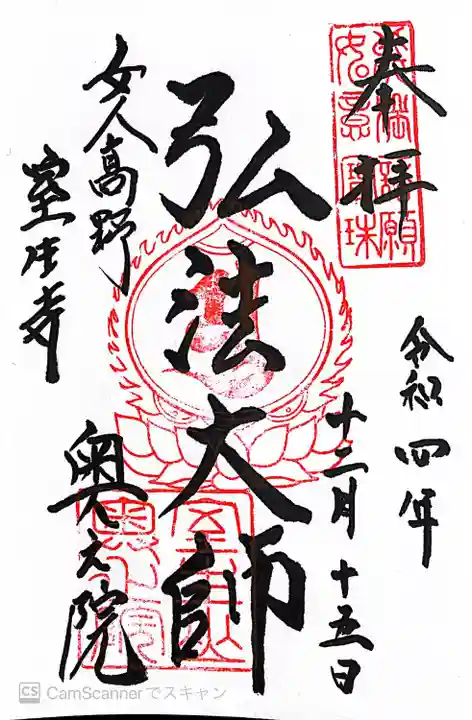 奉拝
令和四年
十二月十五日
弘法大師
女人高野
室生寺
奥之院
CS CamScannerでスキャン